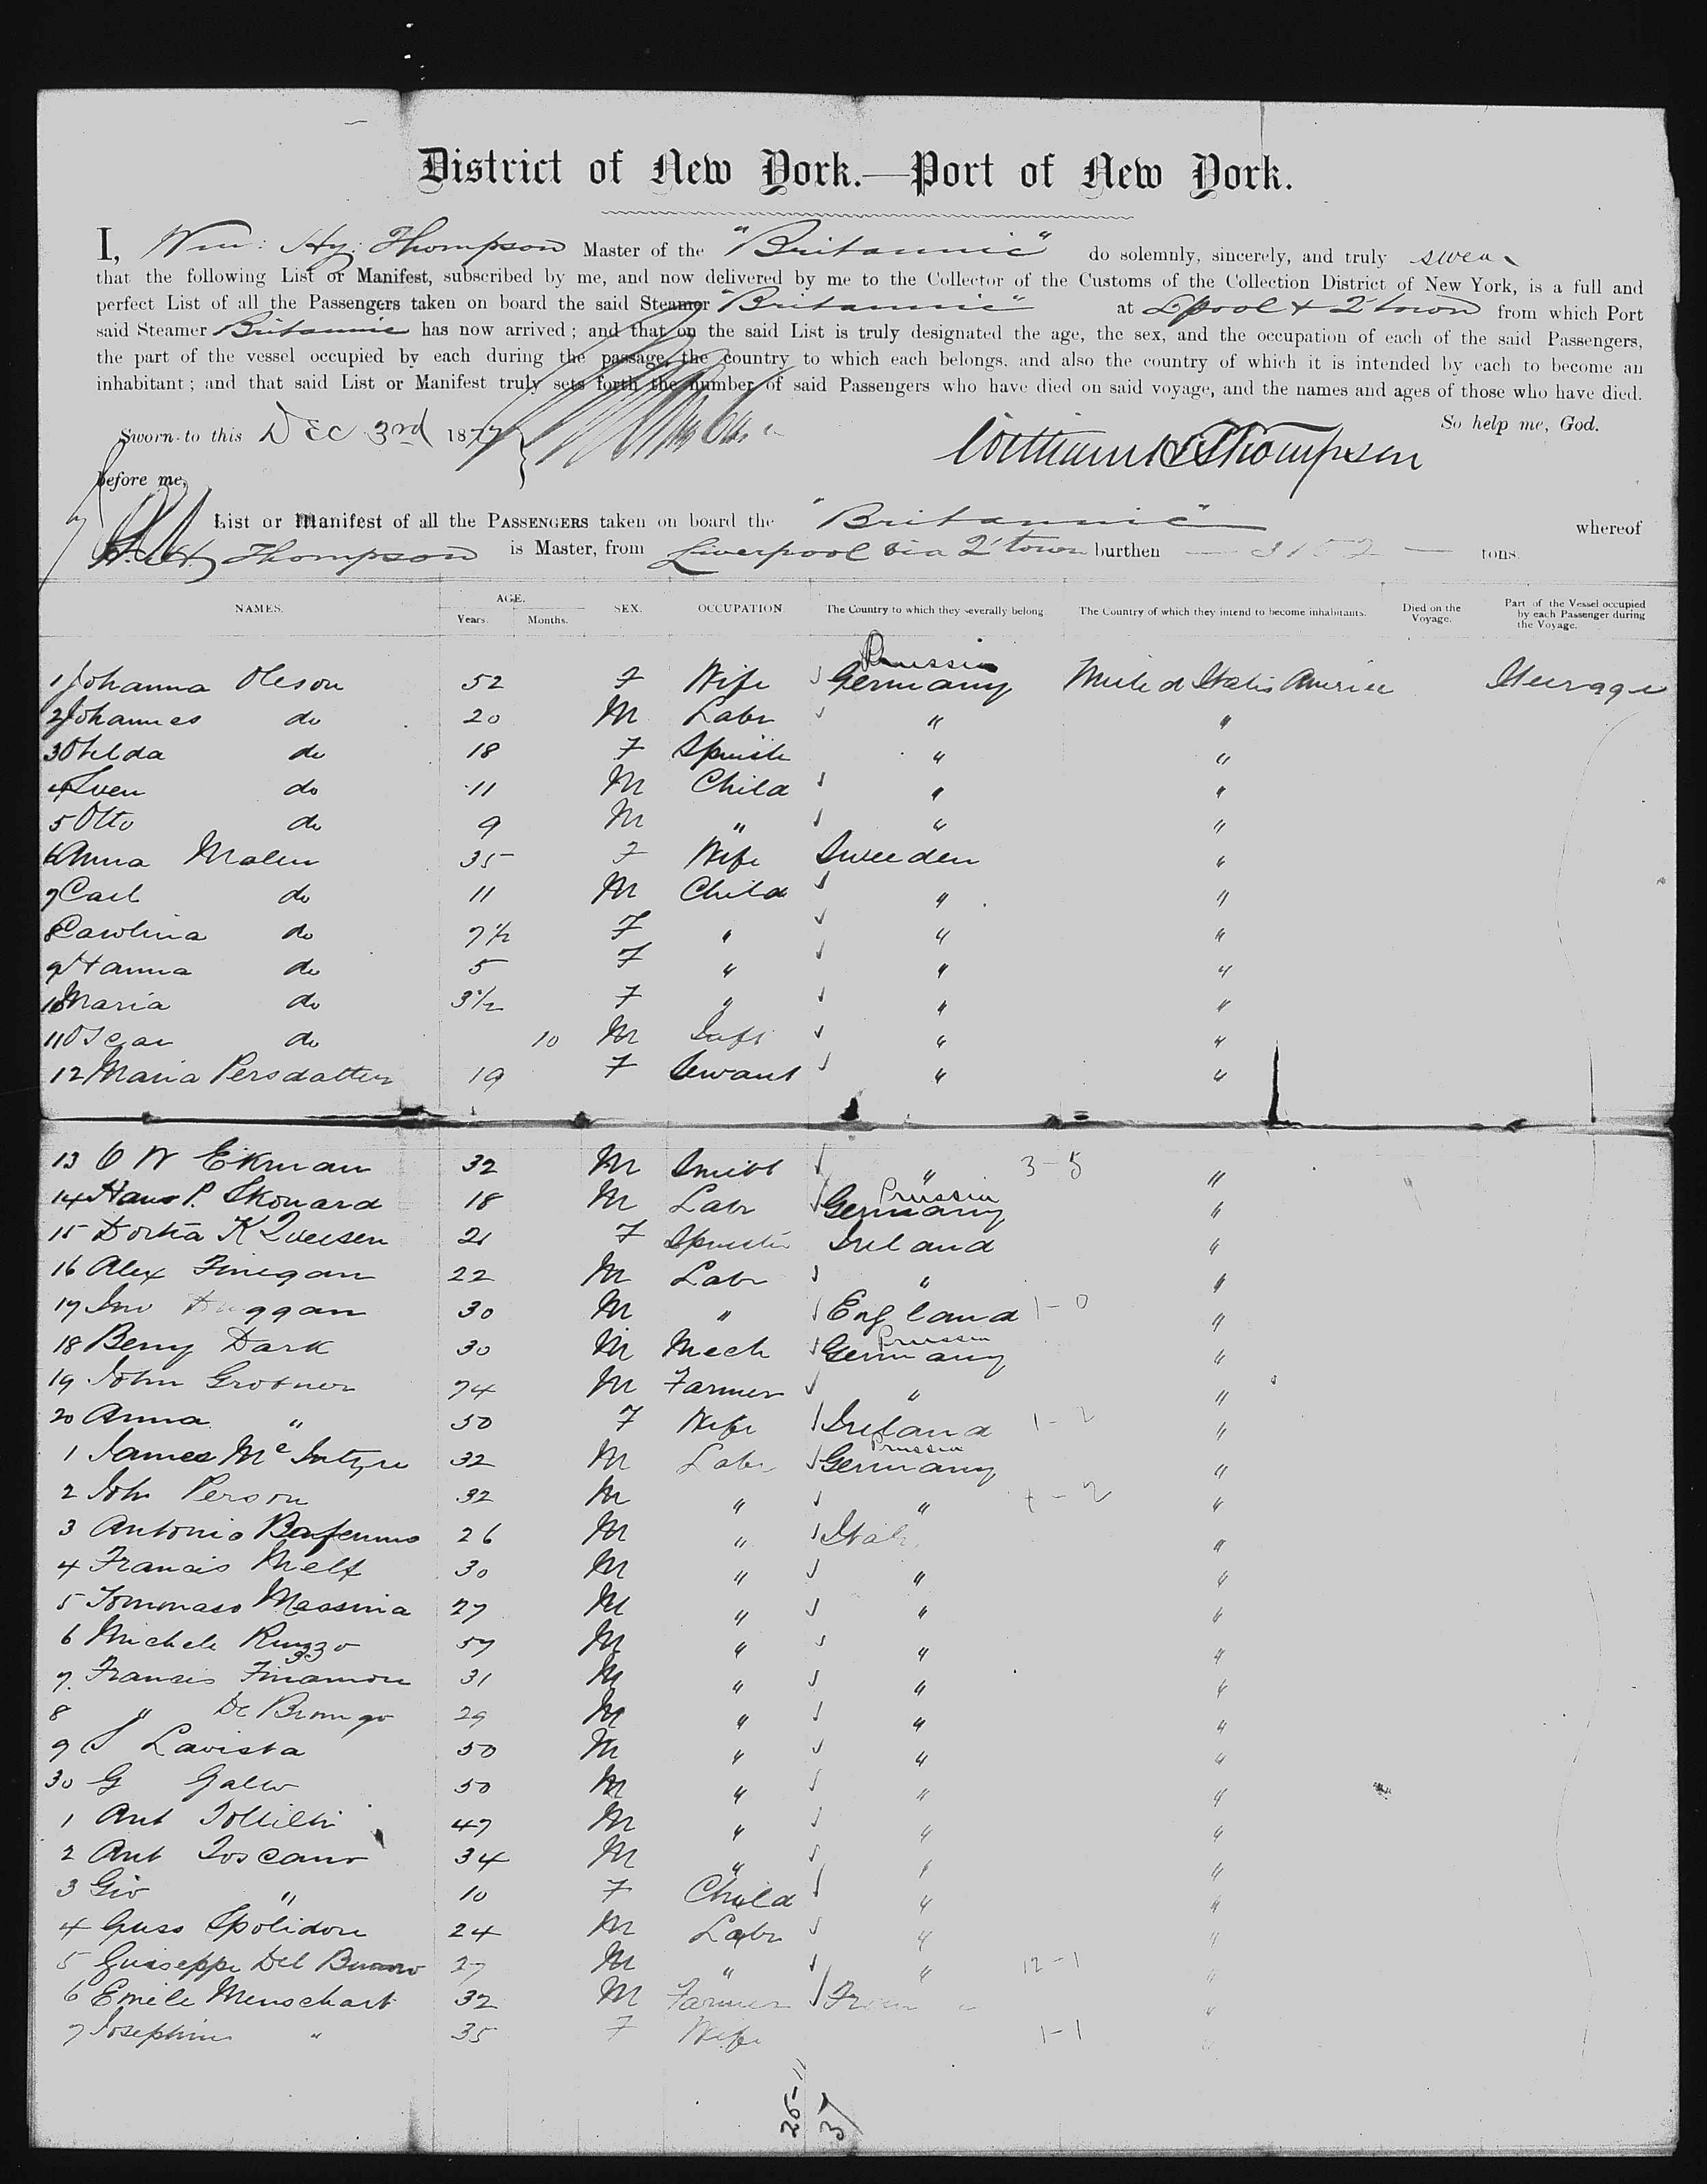 District of New York.—Port of New York.
I, Wm: Hy: Thompson Master of the "Britannic" do solemnly, sincerely, and truly swear
that the following List or Manifest, subscribed by me, and now delivered by me to the Collector of the Customs of the Collection District of New York, is a full and
perfect List of all the Passengers taken on board the said Steamer "Britannic" at L'pool & Q'town from which Port
said Steamer Britannic has now arrived; and that on the said List is truly designated the age, the sex, and the occupation of each of the said Passengers,
the part of the vessel occupied by each during the passage, the country to which each belongs, and also the country of which it is intended by each to become an
inhabitant; and that said List or Manifest truly sets forth the number of said Passengers who have died on said voyage, and the names and ages of those who have died.
So help me, God.
Sworn to this Dec 3rd 1877
William H Thompson
before me,
List or Manifest of all the PASSENGERS taken on board the "Britannic" whereof
W. H. Thompson is Master, from Liverpool via Q'town burthen — 3152 — tons.
NAMES. AGE. Years. Months. SEX. OCCUPATION. The Country to which they severally belong The Country of which they intend to become inhabitants. Died on the Voyage. Part of the Vessel occupied by each Passenger during the Voyage.
Prussia
1 Johanna Oleson 52 F Wife Germany United States America Steerage
2 Johannes do 20 M Labr " "
3 do 18 F Spinste " "
4 Sven do 11 M Child " "
5 Otto do 9 M " " "
6 Anna Malen 35 F Wife Sweeden "
7 Carl do 11 M Child " "
8 Carolina do 7 1/2 F " " "
9 Hanna do 5 F " " "
10 Maria do 3 1/2 F " " "
11 Oscar do 10 M Inft " "
12 Maria Persdatter 19 F Servant " "
13 C W Ekman 32 M Smith " 3-8 "
Prussia
14 Hans P. Skonard 18 M Labr Germany "
15 Dortia K 21 F Spinster Ireland "
16 Alex Finegan 22 M Labr " "
17 Jno Duggan 30 M " England 1-0 "
Prussia
18 Benj Dark 30 M Mech Germany "
19 John Grosner 74 M Farmer " "
20 Anna " 50 F Wife Ireland 1-2 "
Prussia
1 James McIntyre 32 M Labr Germany "
2 John Person 32 M " " -2 "
3 Antonio 26 M " Italy "
4 Francis Melf 30 M " " "
5 Tommaso Massina 27 M " " "
6 Michele Ruzzo 57 M " " "
7 Francis Finamore 31 M " " "
8 " De 29 M " " "
9 Lavista 50 M " " "
30 G Galло 50 M " " "
1 Ant 47 M " " "
2 Ant Toscano 34 M " " "
3 Gio " 10 F Child " "
4 Guss Spolidore 24 M Labr " "
5 Guiseppe Del 27 M " " 12-1 "
6 Emile Menschart 32 M Farmer "
7 Josephine " 35 F Wife 1-1 "
26-11
37